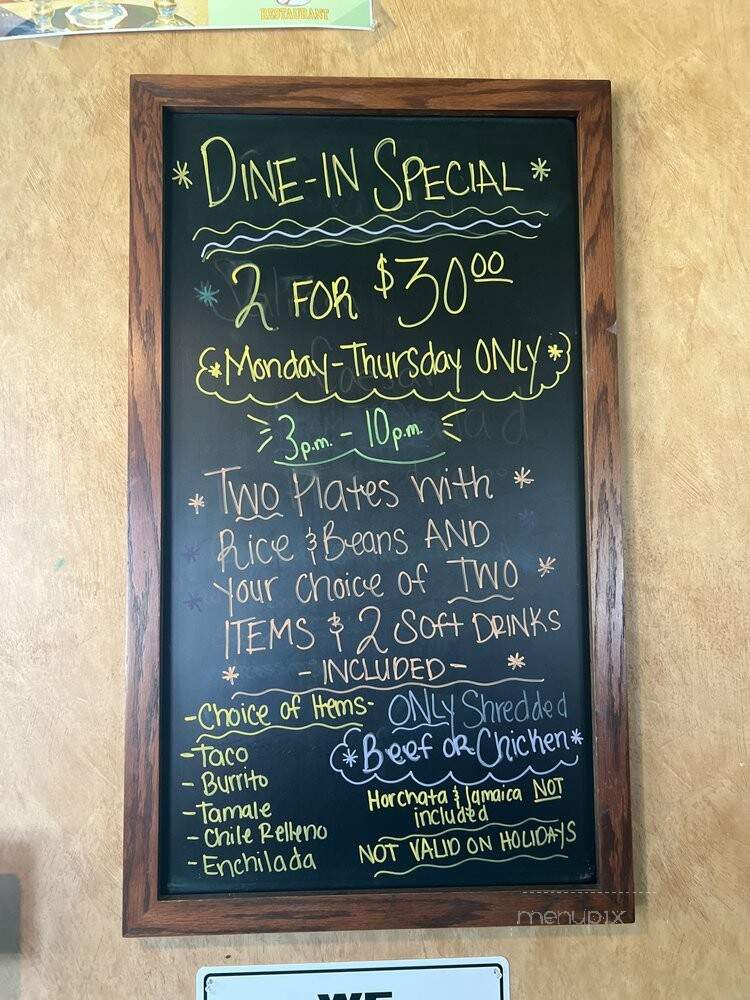 RESTAURANT
* DINE-IN SPECIAL *
* 2 FOR $30.00
* Monday-Thursday ONLY *
3p.m. - 10p.m.
* TWO Plates with *
Rice & Beans AND
your choice of TWO *
ITEMS & 2 Soft DRINKS
* - INCLUDED - *
-Choice of Items-
-Taco
- Burrito
-Tamale
- Chile Relleno
-Enchilada
ONLY Shredded
*Beef OR Chicken*
Horchata & Jamaica NOT
included
NOT VALID ON HOLIDAYS
menupix
WE